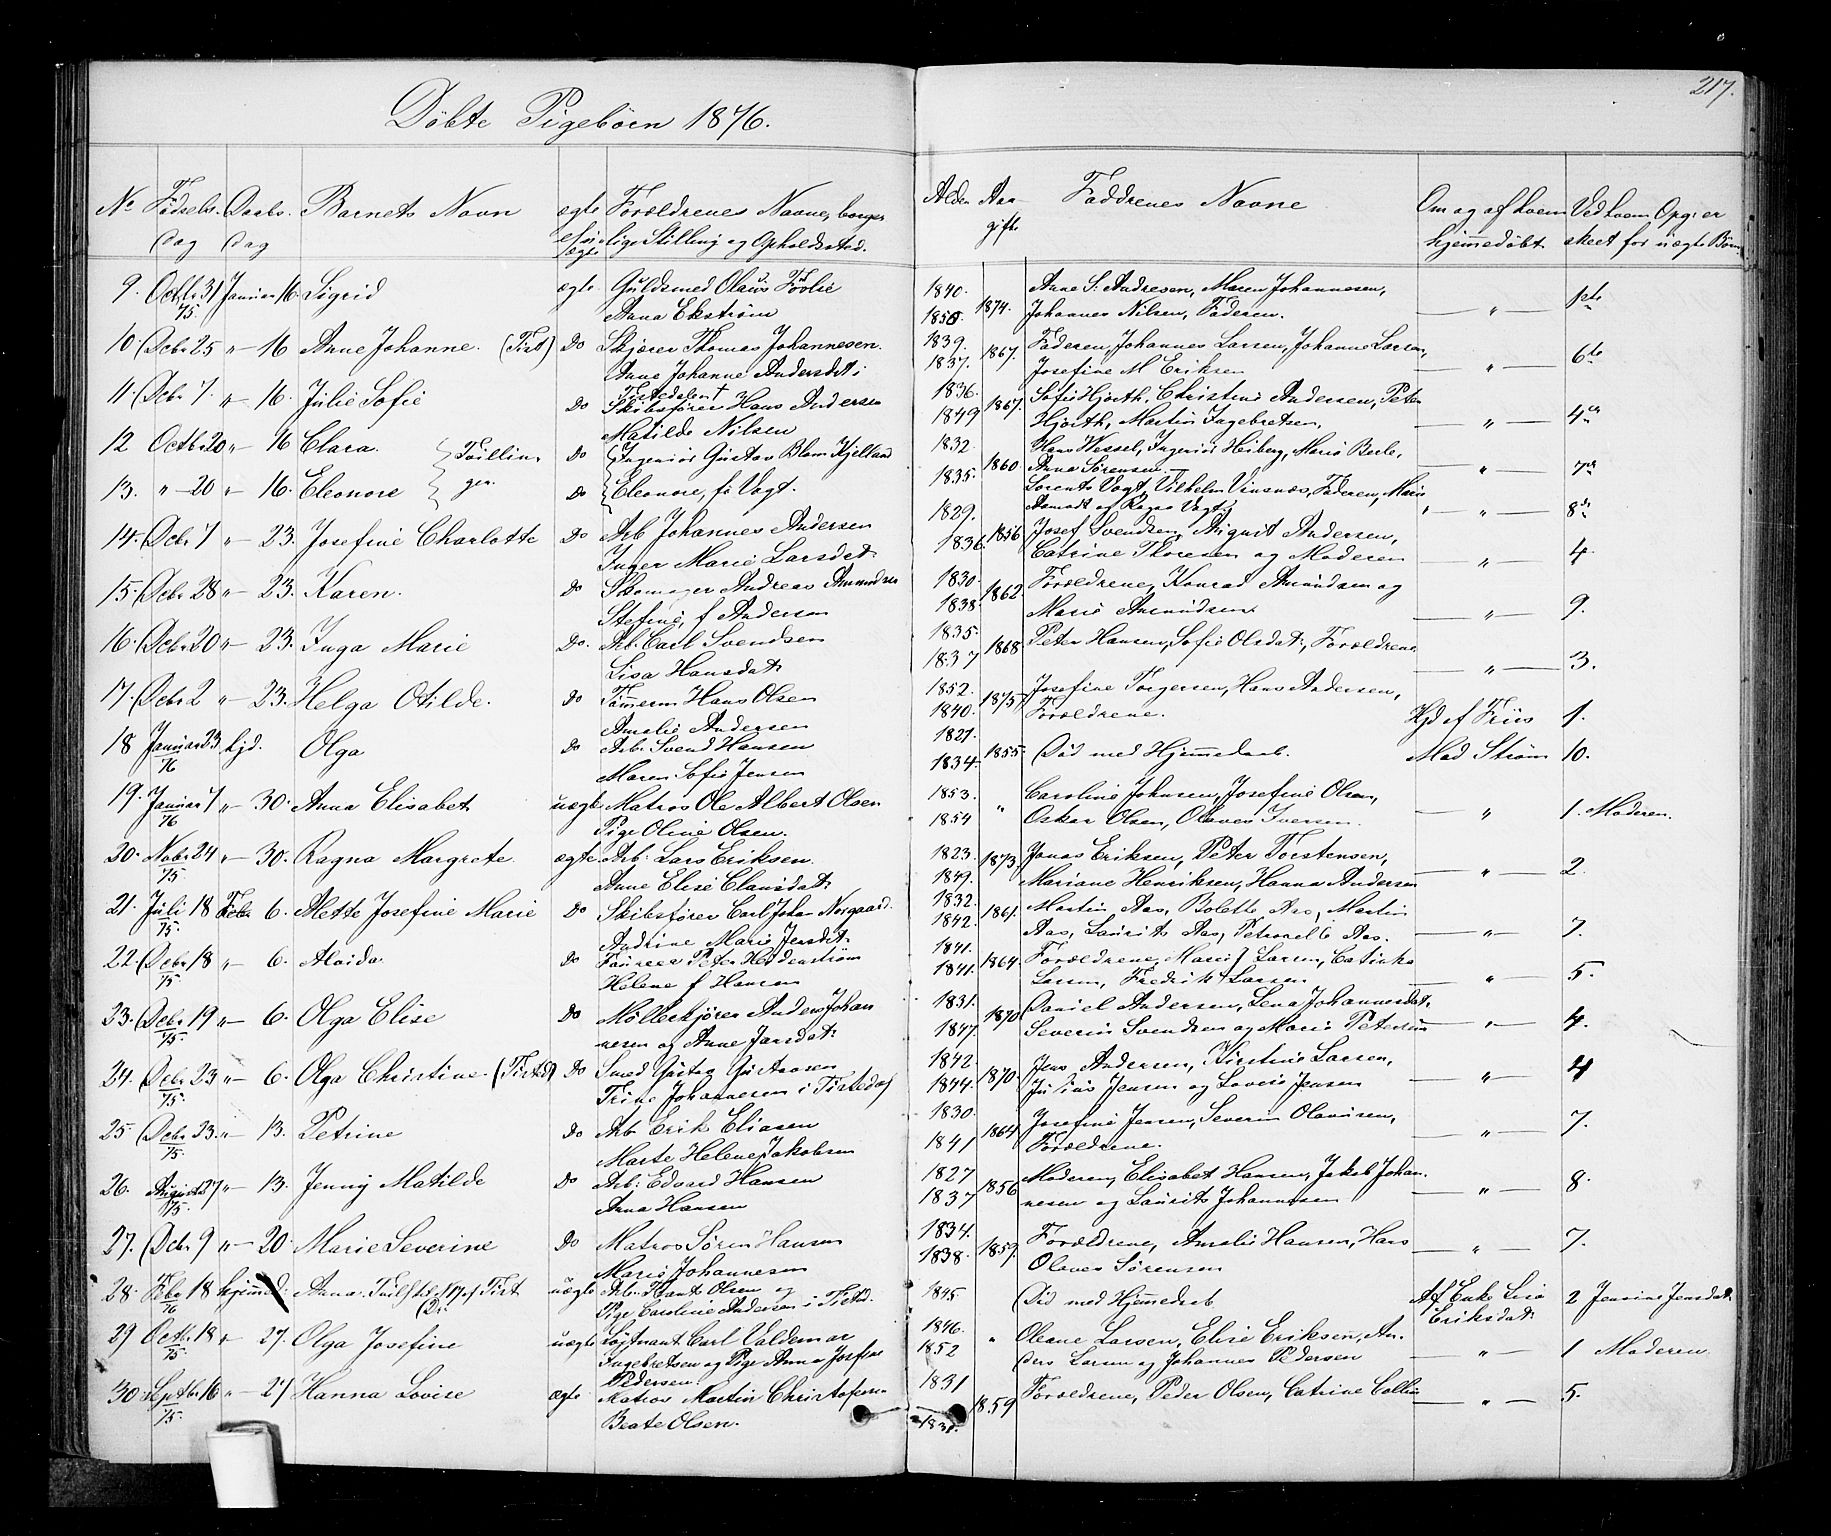 217.
Döbte Pigebörn 1876.
No Födsels- Daabs- Barnets Navn ægte Forældrenes Navne, borger- Alder Aar Faddrenes Navne Om og af hvem Ved hvem Opg: er
dag dag el: u- lige Stilling og Opholdssted. gift hjemmedöbt. skeet for uægte Börn
ægte
9. Octbr 31 Januar 16 Sigrid ægte Guldsmed Olaus Fövlie 1840. Anne S. Andresen, Maren Johannesen, 1ste
75. Anna Ekström 1850. 1874. Johannes Nilsen, Faderen. — " —
10 Decbr 25 " 16 Anne Johanne. (Tist) Do Skjærer Thomas Johannesen. 1839. Faderen, Johannes Larsen, Johanne Larsen, 6te
Anne Johanne Andersdat: i 1837. 1867. Josefine M Eriksen — " —
Tistedalen
11. Decbr 7 " 16. Julie Sofie Do Skibsförer Hans Andersen 1836. Sofie Hjorth, Christine Andersen, Peter
Matilde Nilsen 1849 1867. Hjorth, Martin Ingebretsen. — " — 4de
12 Octbr 20 " 16 Clara. Tvillin- Do Ingeniör Gustav Blom Kjelland 1832. Hans Wessel, Ingeniör Heiberg, Marie Berle,
1860. Anna Sörensen. — " — 7de
13. " 20 " 16. Eleonore ger. Do Eleonore, fö Vogt. 1835. Lorents Vogt, Vilhelm Vinsnæs, Faderen, Marie
Aamodt og Ragna Vogt — " — 8de
14. Decbr 7 " 23. Josefine Charlotte Do Arb Johannes Andersen 1829. Josef Svendsen, August Andersen,
Inger Marie Larsdat. 1836. 1856 Catrine Thoresen og Moderen — " — 4.
15. Decbr 28 " 23. Karen. Do Skomager Andreas Amundsen 1830. Forældrene, Konrad Amundsen og
Stefine, f Andersen 1838. 1862 Marie Amundsen. — " — 9.
16. Decbr 20 " 23. Inga Marie Do. Arb. Carl Svendsen 1835. Peter Hansen, Sofie Olsdat:, Forældrene
Lisa Hansdat: 1837 1868 — " — 3.
17. Decbr 2 " 23. Helga Otilde. Do Tömmerm Hans Olsen 1852. Josefine Torgersen, Hans Andersen,
Amalie Andersen 1840. 1875 Forældrene. Hjd af Friis 1.
18 Januar 23 hjd. Olga Do Arb: Svend Hansen 1821.
76 Maren Sofie Jensen 1834. 1855. Död med Hjemmedaab. Mad Ström 10.
19. Januar 7 " 30. Anna Elisabet uægte Matros Ole Albert Olsen 1853. Caroline Johnsen, Josefine Olsen,
76 Pige Oline Olsen. 1854 " Oskar Olsen, Olaves Iversen. — " — 1. Moderen.
20. Novbr 24 " 30. Ragna Margrete. ægte Arb: Lars Eriksen. 1823. Jonas Eriksen, Peter Torstensen,
75. Anne Elise Clausdat: 1849. 1873. Mariane Henriksen, Hanna Andersen — " — 2.
21. Juli 18 Febr 6. Mette Josefine Marie Do Skibsförer Carl Johan Norgaard. 1832. Martin Aas, Bolette Aas, Martin
75. Andrine Marie Jensdat: 1842. 1861. Aas, Laurits Aas, Petronelle Aas. — " — 7.
22. Decbr 18 " 6. Alvida. Do Peter Hedenström 1841. Forældrene, Marie Larsen, Catinka
75. Helene f Hansen 1841. 1864. Larsen, Fredrik Larsen — " — 5.
23. Decbr 19 " 6. Olga Elise Do Möllerkjörer Anders Johan 1831. Daniel Andersen, Lena Johannesdat.
75. nesen og Anne Jansdat: 1847. 1870 Severin Svendsen og Marie Petersen — " — 4.
24. Decbr 23 " 6. Olga Christine. (Tistd) Do Smed Gustav Gustavsen 1842. Jens Andersen, Kirstine Larsen,
75. Trine Johannesen i Tistedal 1844. 1870. Julius Jensen og Lovise Jensen — " — 4
25 Decbr 23. " 13. Petrine Do Arb Erik Eliasen 1830. Josefine Jensen, Severin Olausen,
75. Marte Helene Jakobsen 1841 1864 Forældrene. — " — 7.
26. August 27 " 13. Jenny Matilde Do Arb: Edvard Hansen 1827 Moderen, Elisabet Hansen, Jakob Johan-
75. Anna Hansen 1837 1856 nesen og Laurits Johannesen — " — 8.
27. Decbr 9 " 20 Marie Severine Do Matros Sören Hansen 1834. Forældrene, Amalie Hansen, Hans
Marie Johannesen 1838. 1859. Olaves Sörensen " — 7.
28. Febr 18 hjemmd: Anna. Tist uægte Arb: Knut Olsen og 1845 Död med Hjemmedaab Af Enke Lise 2 Jensine Jensdat
76 Pige Caroline Andersen i Tistd. Eriksdat:
29 Octbr 18 " 27. Olga Josefine uægte Löjtnant Carl Valdemar 1846. Oleane Larsen, Elise Eriksen, An-
75 Ingebretsen og Pige Anna Josefine 1852 " ders Larsen og Johannes Pedersen — " — 1 Moderen.
Pedersen.
30 Septbr 16 " 27. Hanna Lovise ægte Matros Martin Christofersen 1831 Forældrene, Peder Olsen, Catrine
75. Beate Olsen. 1831. 1859 — " — 5.